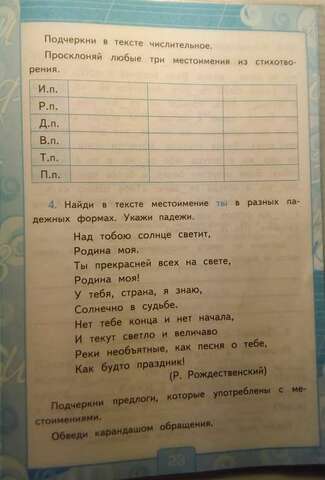 Подчеркни в тексте числительное.
Просклоняй любые три местоимения из стихотво-
рения.
И.п.
Р.п.
Д.п.
В.п.
Т.п.
П.п.
4. Найди в тексте местоимение ты в разных па-
дежных формах. Укажи падежи.
Над тобою солнце светит,
Родина моя.
Ты прекрасней всех на свете,
Родина моя!
У тебя, страна, я знаю,
Солнечно в судьбе.
Нет тебе конца и нет начала,
И текут светло и величаво
Реки необъятные, как песня о тебе,
Как будто праздник!
(Р. Рождественский)
Подчеркни предлоги, которые употреблены с ме-
стоимениями.
Обведи карандашом обращения.
23